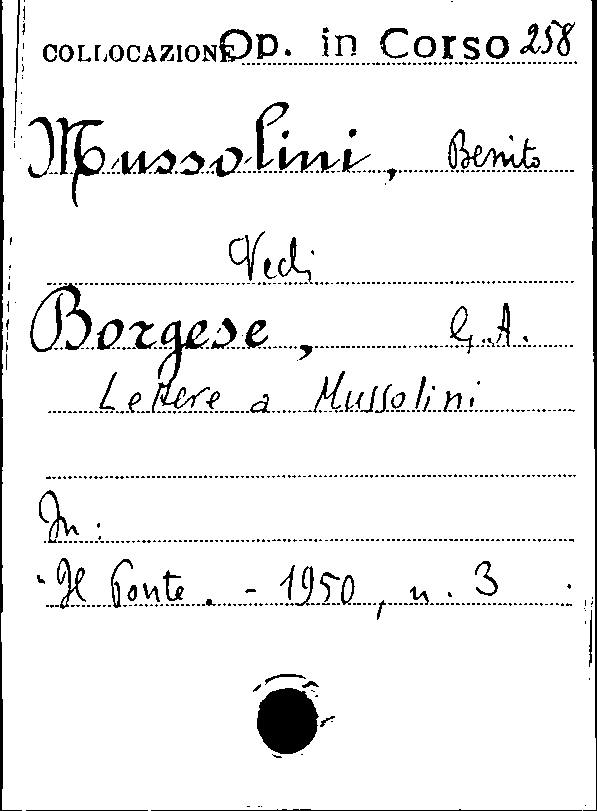 COLLOCAZIONE Op. in Corso 258
Mussolini, Benito
Vedi
Borgese, G. A.
Lettere a Mussolini
In:
"Il Ponte. - 1950, n. 3.